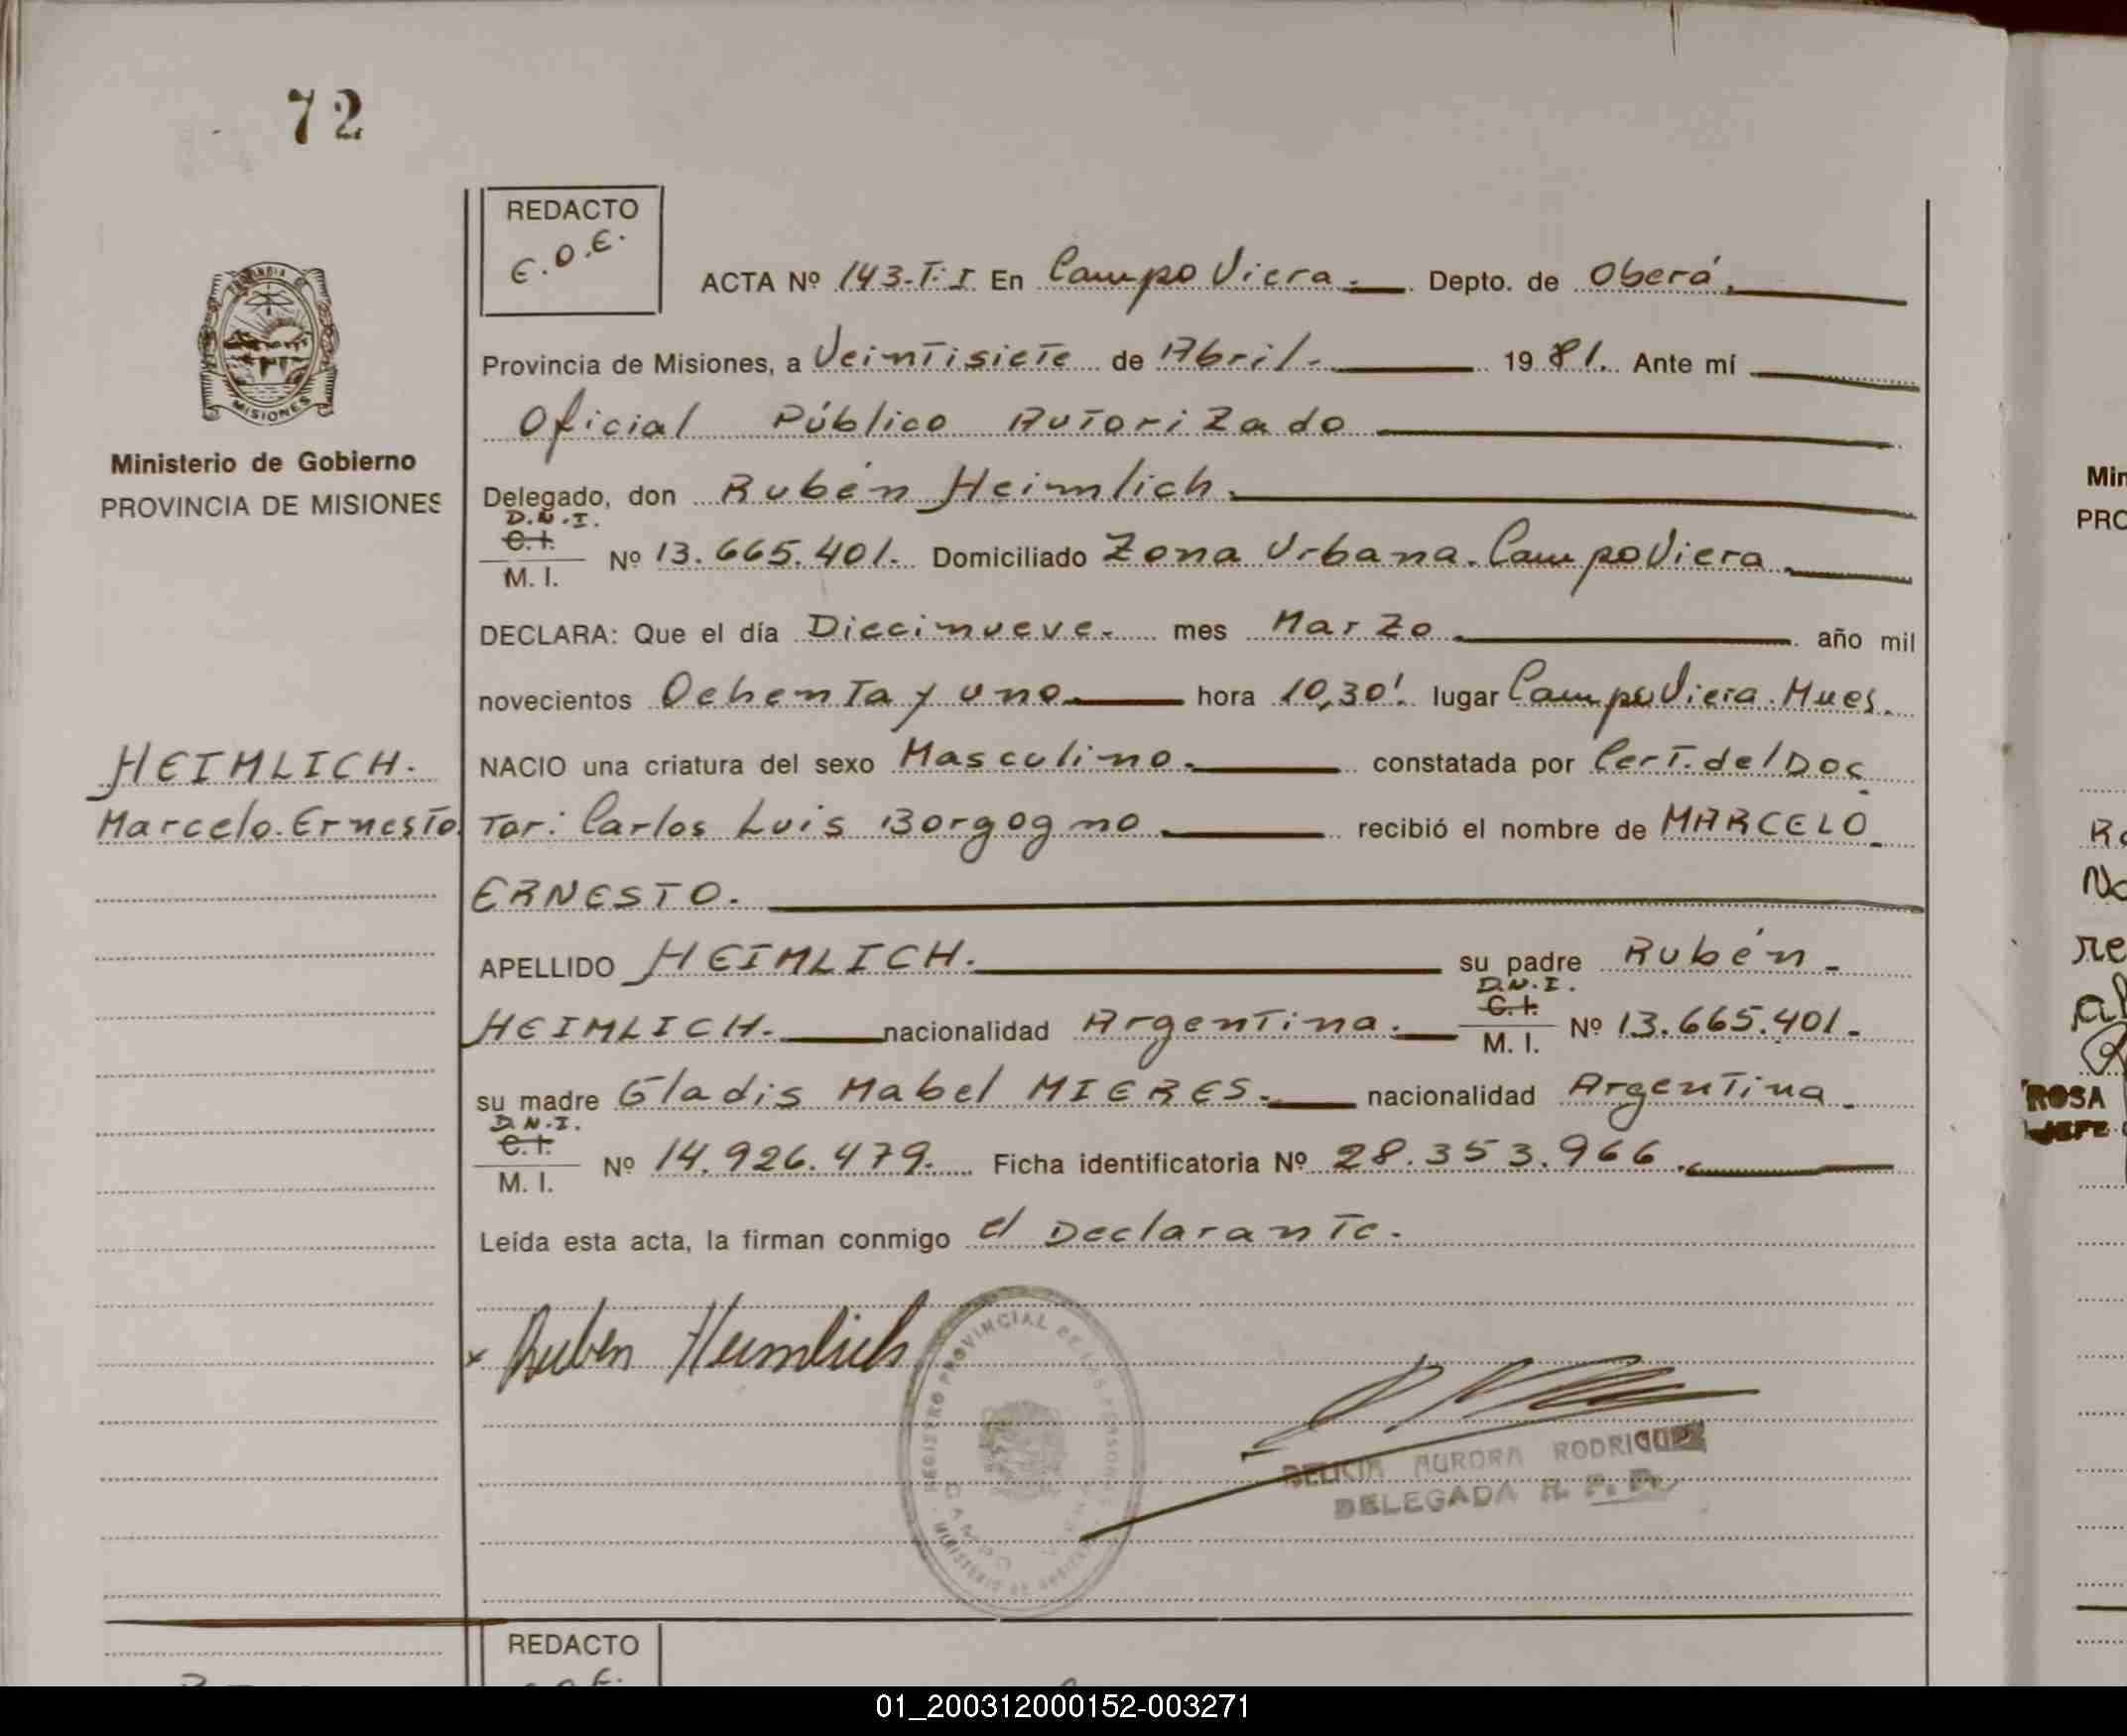 72
REDACTO
E.O.E.
ACTA Nº 143-T:I En Campo Viera.- Depto. de Oberá.
Provincia de Misiones, a Veintisiete de Abril.- 1981. Ante mí
Oficial Público Autorizado
Ministerio de Gobierno
PROVINCIA DE MISIONES
Delegado, don Rubén Heimlich.
D.N.I.
C.I.
M. I. Nº 13.665.401. Domiciliado Zona Urbana. Campo Viera.
DECLARA: Que el día Diecinueve. mes Marzo año mil
novecientos Ochenta y uno hora 10,30'. lugar Campo Viera. Mnes.
HEIMLICH.
NACIO una criatura del sexo Masculino. constatada por Cert. del Doc
Marcelo Ernesto.
Tor: Carlos Luis Borgogno recibió el nombre de MARCELO
ERNESTO.
APELLIDO HEIMLICH. su padre Rubén.
HEIMLICH. nacionalidad Argentina. D.N.I. C.I. M. I. Nº 13.665.401.-
su madre Gladis Mabel MIERES. nacionalidad Argentina.
D.N.I.
C.I.
M. I. Nº 14.926.479. Ficha identificatoria Nº 28.353.966.
Leída esta acta, la firman conmigo el Declarante.
x Ruben Heimlich
REGISTRO PROVINCIAL DE LAS PERSONAS
CAMPO
MINISTERIO DE
AURORA RODRIGUEZ
DELEGADA R. P. P.
REDACTO
Min
PRO
ROSA
JEFE
01_200312000152-003271